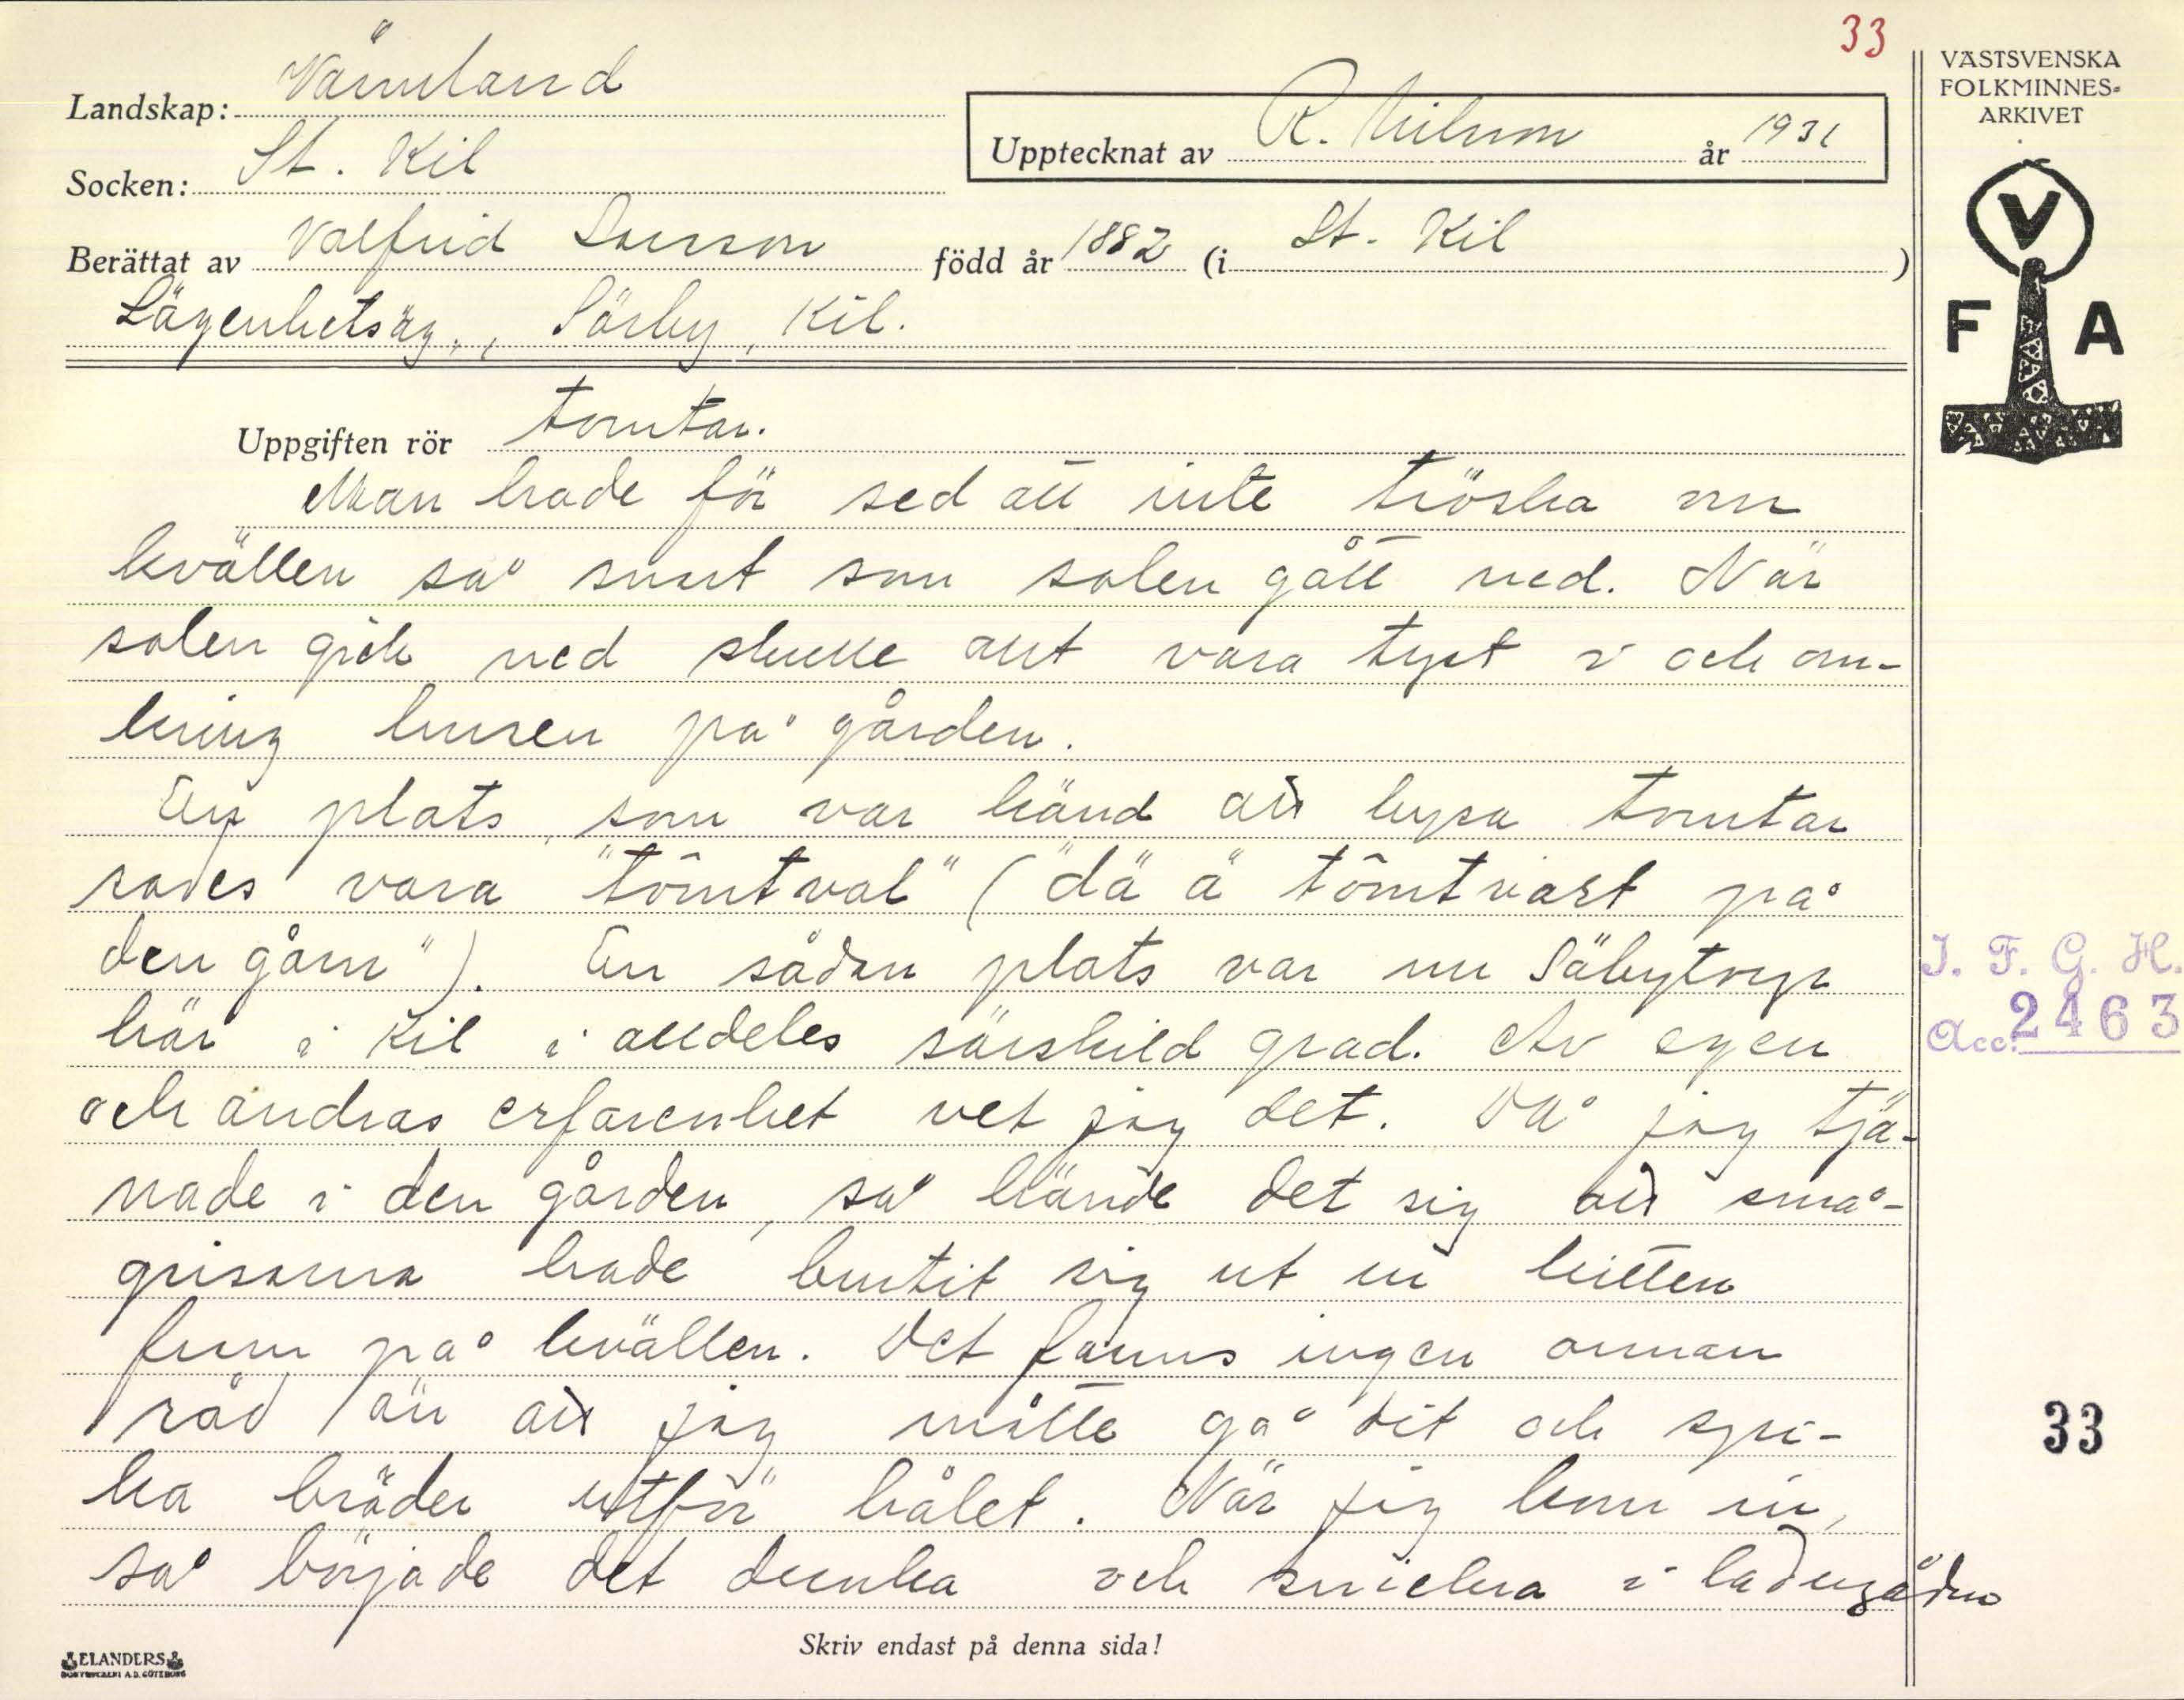 33
VÄSTSVENSKA
FOLKMINNES-
ARKIVET
Landskap: Värmland
Upptecknat av R. Nilsson år 1931
Socken: St. Kil
Berättat av Valfrid Larsson född år 1882 (i St. Kil )
Lägenhetsäg., Sörby, Kil.
V
F A
Uppgiften rör tomtar.
Man hade för sed att inte tröska om
kvällen så snart som solen gått ned. När
solen gick ned skulle allt vara tyst i och om-
kring husen på gården.
En plats, som var känd att hysa tomtar
sades vara "tômtval" ("dä ä tômtvast på
den gårn"). En sådan plats var nu
här i Kil i alldeles särskild grad. Av egen
och andras erfarenhet vet jag det. Då jag tjä-
nade i den gården, så hände det sig att små-
grisarna hade brutit sig ut ur kätten
fram på kvällen. Det fanns ingen annan
råd än att jag måtte gå dit och spi-
ka bräder utför hålet. När jag kom in,
så började det dunka och smickra i ladugården
I. F. G. H.
Acc. 2463
33
Skriv endast på denna sida!
ELANDERS
BOKTRYCKERI A.B. GÖTEBORG